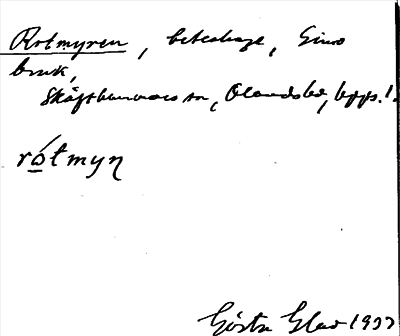 Rotmyren, beteshage, Gimo
bruk,
Skäfthammars sn, Olands hd, Upps. l.
rótmyn
Gösta Glad 1933